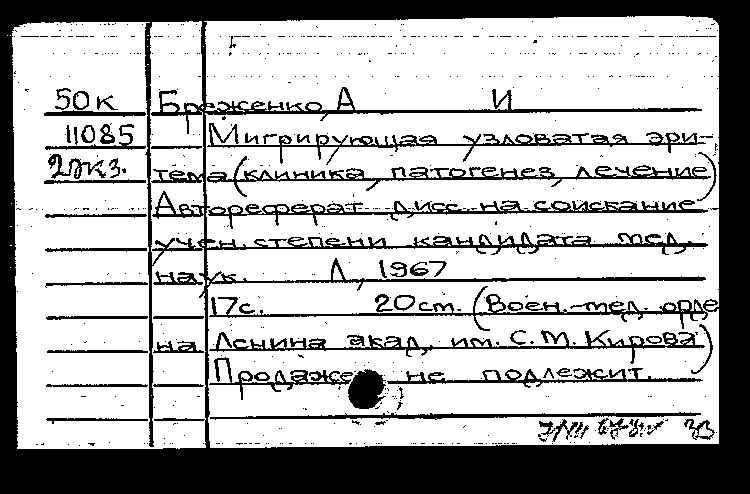 50к Бреженко, А И
11085 Мигрирующая узловатая эри-
2экз. тема (клиника, патогенез, лечение)
Автореферат дисс. на соискание
учен. степени кандидата мед.
наук. Л., 1967
17с. 20см. (Воен.-мед. орде
на Ленина акад. им. С.М. Кирова)
Продаже не подлежит.